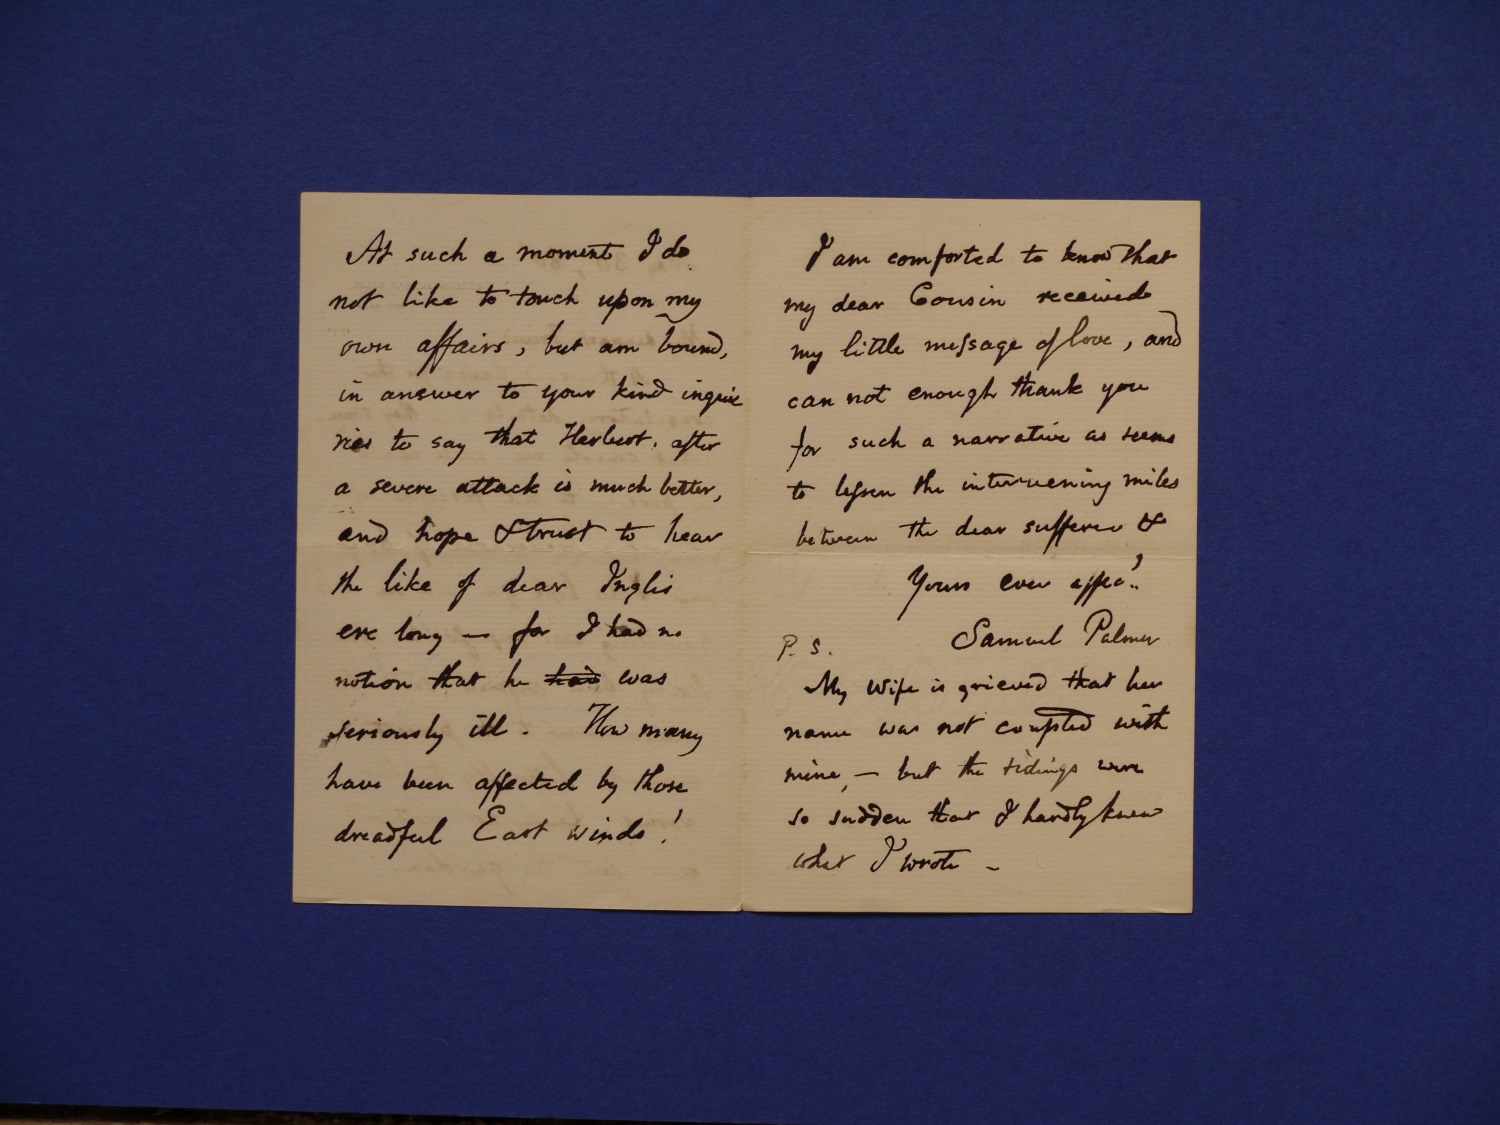 At such a moment I do
not like to touch upon my
own affairs, but am bound,
in answer to your kind inqui
ries to say that Herbert, after
a severe attack is much better,
and hope & trust to hear
the like of dear Inglis
ere long — for I had no
notion that he had was
seriously ill. How many
have been affected by those
dreadful East winds!
I am comforted to know that
my dear Cousin received
my little message of love, and
can not enough thank you
for such a narrative as seems
to lessen the intervening miles
between the dear sufferer &
Yours ever affec.
Samuel Palmer
P. S.
My Wife is grieved that her
name was not coupled with
mine, — but the tidings were
so sudden that I hardly knew
what I wrote —